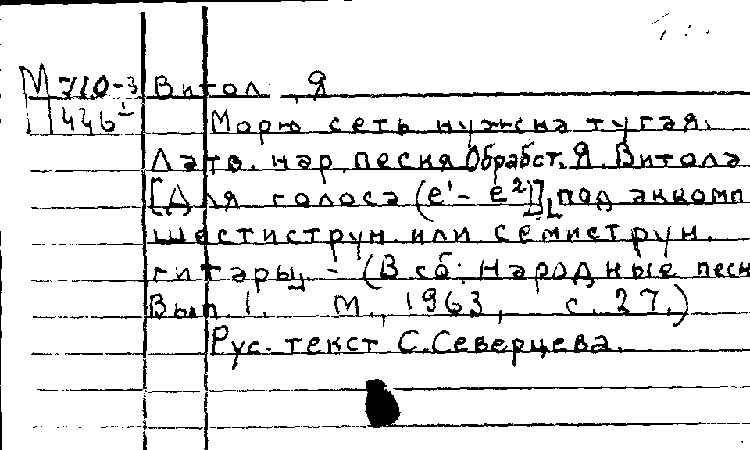 М 710-3 Витол, Я
П 446 Морю сеть нужна тугая.
Латв. нар. песня Обработ. Я Витола
[Для голоса (e¹ - e²)], под аккомп
шестиструн. или семиструн.
гитары - (В сб: Народные песн
Вып. 1. М., 1963, с. 27.)
Рус. текст С. Северцева.